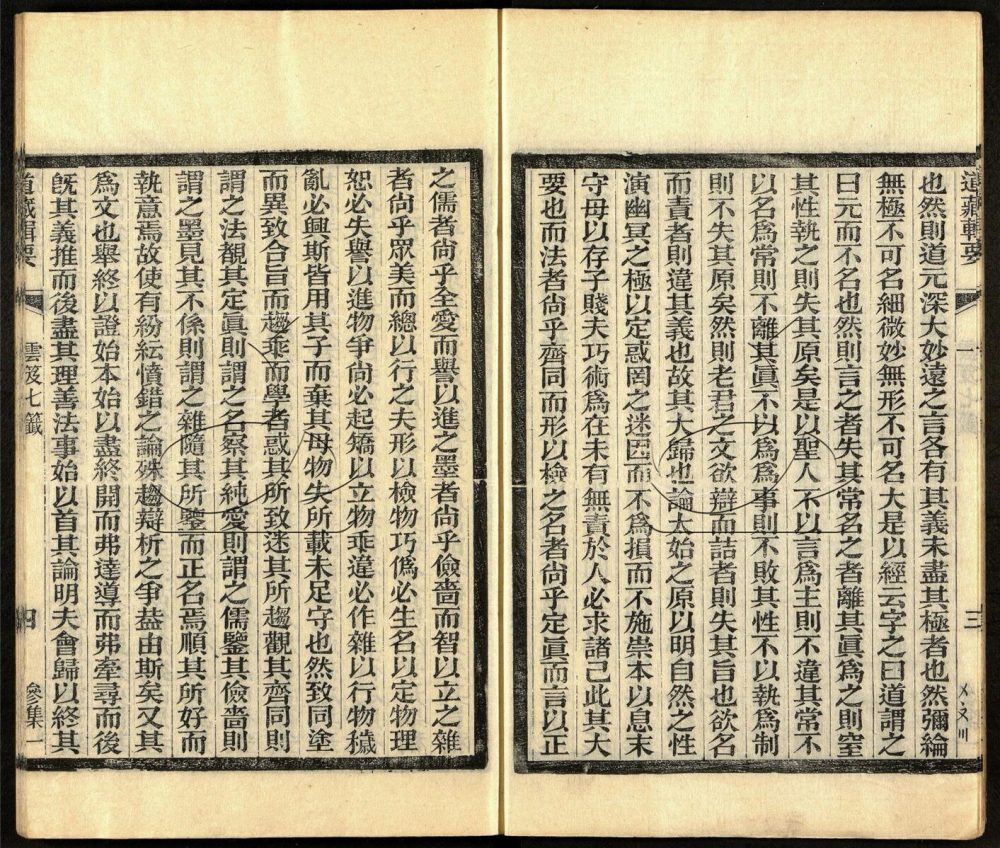 道藏輯要
一
三
〤〥〣
也然則道元深大妙遠之言各有其義未盡其極者也然彌綸
無極不可名細微妙無形不可名大是以經云字之曰道謂之
曰元而不名也然則言之者失其常名之者離其眞爲之則窒
其性執之則失其原矣是以聖人不以言爲主則不違其常不
以名爲常則不離其眞不以爲爲事則不敗其性不以執爲制
則不失其原矣然則老君之文欲辯而詰者則失其旨也欲名
而責者則違其義也故其大歸也論太始之原以明自然之性
演幽冥之極以定惑罔之迷因而不爲損而不施崇本以息末
守母以存子賤夫巧術爲在未有無責於人必求諸己此其大
要也而法者尚乎齊同而形以檢之名者尚乎定眞而言以正
之儒者尚乎全愛而譽以進之墨者尚乎儉嗇而智以立之雜
者尚乎眾美而總以行之夫形以檢物巧僞必生名以定物理
恕必失譽以進物爭尚必起矯以立物乖違必作雜以行物穢
亂必興斯皆用其子而棄其母物失所載未足守也然致同塗
而異致合旨而趨乖而學者惑其所致迷其所趨觀其齊同則
謂之法覩其定眞則謂之名察其純愛則謂之儒鑒其儉嗇則
謂之墨見其不係則謂之雜隨其所鑒而正名焉順其所好而
執意焉故使有紛紜憒錯之論殊趨辯析之爭葢由斯矣又其
爲文也舉終以證始本始以盡終開而弗達導而弗牽尋而後
旣其義推而後盡其理善法事始以首其論明夫會歸以終其
道藏輯要
雲笈七籤
四
參集一